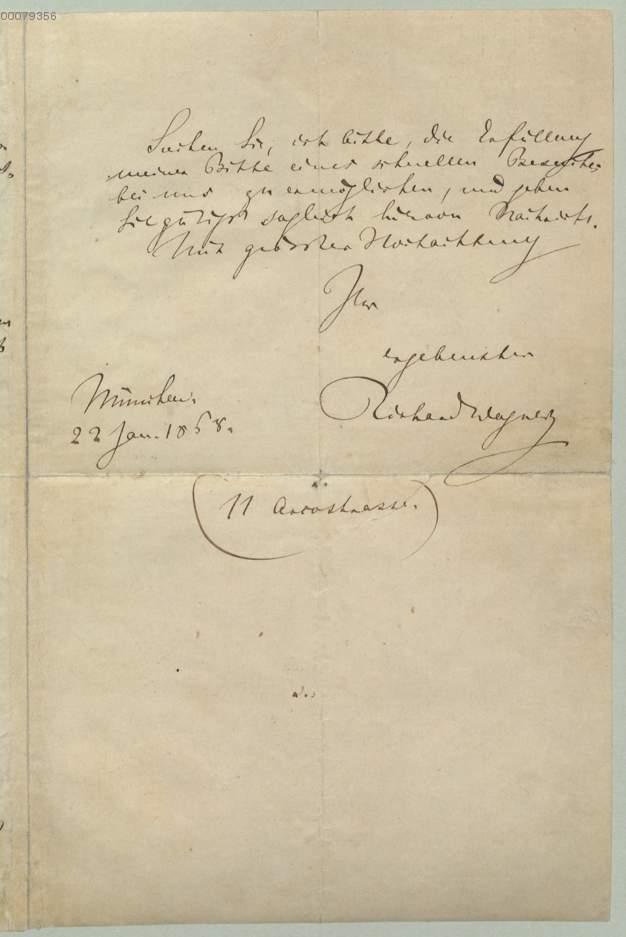 00079356
Suchen Sie, ich bitte, die Erfüllung
meiner Bitte eines schnellen Besuches
bei uns zu ermöglichen, und geben
Sie gütigst sogleich hiervon Nachricht.
Mit grösster Hochachtung
Ihr
ergebenster
Richard Wagner
München.
22 Jan. 1868.
(11 Arcostrasse.)